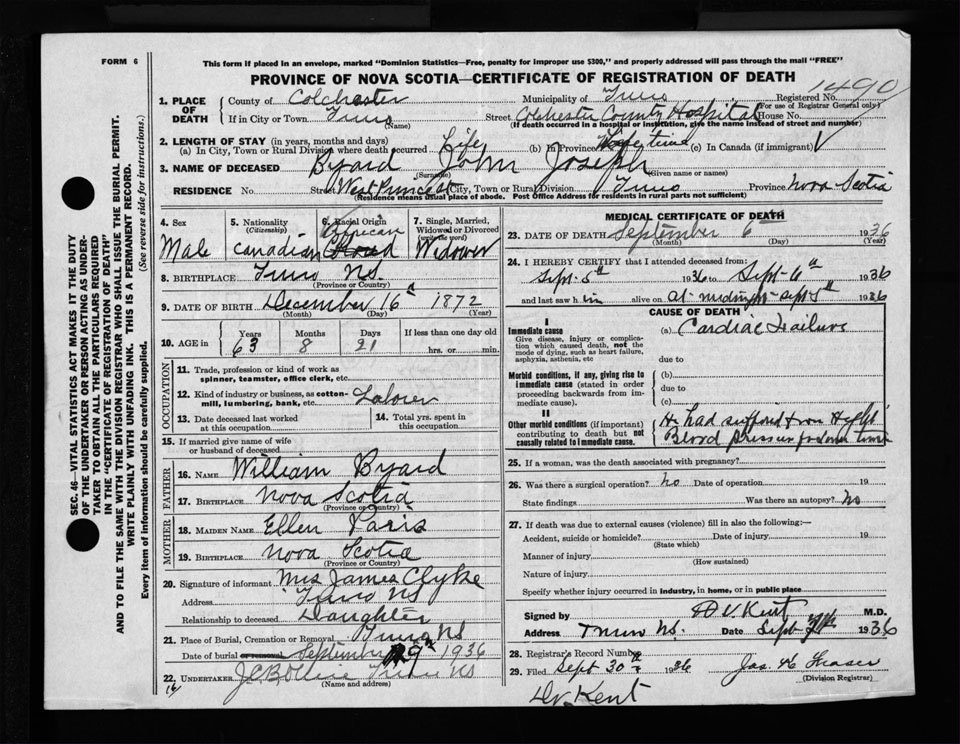 FORM 6
This form if placed in an envelope, marked "Dominion Statistics—Free, penalty for improper use $300," and properly addressed will pass through the mail "FREE"
PROVINCE OF NOVA SCOTIA—CERTIFICATE OF REGISTRATION OF DEATH
1490
1. PLACE OF DEATH County of Colchester Municipality of Truro Registered No.
(For use of Registrar General only)
If in City or Town Truro Street Colchester County Hospital House No.
(Name) (If death occurred in a hospital or institution, give the name instead of street and number)
2. LENGTH OF STAY (in years, months and days)
(a) In City, Town or Rural Division where death occurred Life (b) In Province Life time (c) In Canada (if immigrant)
3. NAME OF DECEASED Byard John Joseph
(Surname) (Given name or names)
RESIDENCE No. Street West Prince St (City, Town or Rural) Division Truro Province Nova Scotia
(Residence means usual place of abode. Post Office Address for residents in rural parts not sufficient)
4. Sex Male
5. Nationality (Citizenship) Canadian
6. Racial Origin African
7. Single, Married, Widowed or Divorced (write the word) Widower
8. BIRTHPLACE Truro NS.
(Province or Country)
9. DATE OF BIRTH December 16th 1872
(Month) (Day) (Year)
10. AGE in Years 63 Months 8 Days 21 If less than one day old hrs. or min.
OCCUPATION
11. Trade, profession or kind of work as spinner, teamster, office clerk, etc.
12. Kind of industry or business, as cotton-mill, lumbering, bank, etc. Laborer
13. Date deceased last worked at this occupation
14. Total yrs. spent in this occupation
15. If married give name of wife or husband of deceased
FATHER
16. NAME William Byard
17. BIRTHPLACE Nova Scotia
(Province or Country)
MOTHER
18. MAIDEN NAME Ellen Paris
19. BIRTHPLACE Nova Scotia
(Province or Country)
20. Signature of informant Mrs James Clyke
Address Truro NS
Relationship to deceased Daughter
21. Place of Burial, Cremation or Removal Truro NS
Date of burial or removal September 9th 1936
22. UNDERTAKER Truro NS
(Name and address)
MEDICAL CERTIFICATE OF DEATH
23. DATE OF DEATH September 6th 1936
(Month) (Day) (Year)
24. I HEREBY CERTIFY that I attended deceased from:
Sept. 5th 1936 to Sept. 6th 1936
and last saw him alive on at midnight Sept 5th 1936
CAUSE OF DEATH
I
Immediate cause
Give disease, injury or complication which caused death, not the mode of dying, such as heart failure, asphyxia, asthenia, etc
(a) Cardiac Failure
due to
Morbid conditions, if any, giving rise to immediate cause (stated in order proceeding backwards from immediate cause).
(b)
due to
(c)
II
Other morbid conditions (if important) contributing to death but not causally related to immediate cause.
He had suffered from High Blood Pressure for some time
25. If a woman, was the death associated with pregnancy?
26. Was there a surgical operation? no Date of operation 19
State findings Was there an autopsy? No
27. If death was due to external causes (violence) fill in also the following:—
Accident, suicide or homicide? Date of injury 19
(State which)
Manner of injury
(How sustained)
Nature of injury
Specify whether injury occurred in industry, in home, or in public place
Signed by H V. Kent M.D.
Address Truro NS. Date Sept 7th 1936
28. Registrar's Record Number
29. Filed Sept 30th 1936 Jas. H Fraser
(Division Registrar)
Dr. Kent
SEC. 46—VITAL STATISTICS ACT MAKES IT THE DUTY
OF THE UNDERTAKER OR PERSON ACTING AS UNDER-
TAKER TO OBTAIN ALL THE PARTICULARS REQUIRED
IN THE "CERTIFICATE OF REGISTRATION OF DEATH"
AND TO FILE THE SAME WITH THE DIVISION REGISTRAR WHO SHALL ISSUE THE BURIAL PERMIT.
WRITE PLAINLY WITH UNFADING INK. THIS IS A PERMANENT RECORD.
Every item of information should be carefully supplied. (See reverse side for instructions.)